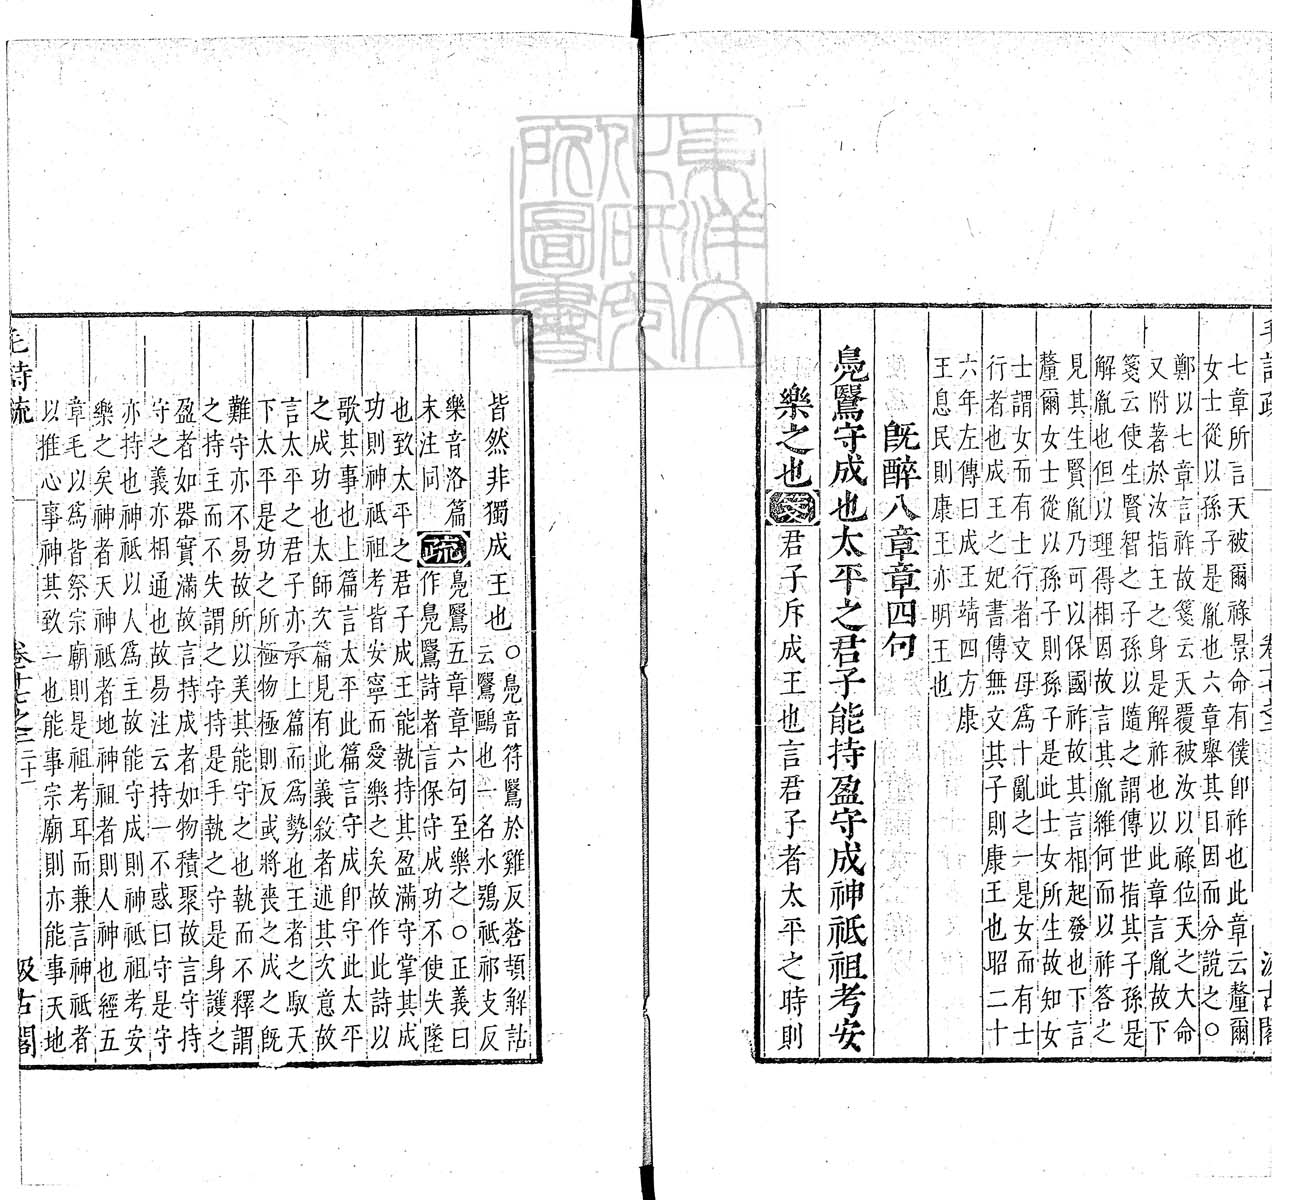 七章所言天被爾祿景命有僕卽祚也此章云釐爾
女士從以孫子是胤也六章舉其目因而分說之○
鄭以七章言祚故箋云天覆被汝以祿位天之大命
又附著於汝指王之身是解祚也以此章言胤故下
箋云使生賢智之子孫以隨之謂傳世指其子孫是
解胤也但以理得相因故言其胤維何而以祚答之
見其生賢胤乃可以保國祚故其言相起發也下言
釐爾女士從以孫子則孫子是此士女所生故知女
士謂女而有士行者文母爲十亂之一是女而有士
行者也成王之妃書傳無文其子則康王也昭二十
六年左傳曰成王靖四方康
王息民則康王亦明王也
旣醉八章章四句
鳧鷖守成也太平之君子能持盈守成神祇祖考安
樂之也 君子斥成王也言君子者太平之時則
皆然非獨成王也
○鳧音符鷖於雞反蒼頡解詁
云鷖鷗也一名水鴞祗祁支反
樂音洛篇
末注同
疏
鳧鷖五章章六句至樂之○正義曰
作鳧鷖詩者言保守成功不使失墜
也致太平之君子成王能執持其盈滿守掌其成
功則神祗祖考皆安寧而愛樂之矣故作此詩以
歌其事也上篇言太平此篇言守成卽守此太平
之成功也太師次篇見有此義敘者述其次意故
言太平之君子亦承上篇而爲勢也王者之馭天
下太平是功之所極物極則反或將喪之成之旣
難守亦不易故所以美其能守之也執而不釋謂
之持主而不失謂之守持是手執之守是身護之
盈者如器實滿故言持成者如物積聚故言守持
守之義亦相通也故易注云持一不惑曰守是守
亦持也神祗以人爲主故能守成則神祗祖考安
樂之矣神者天神祗者地神祖者則人神也經五
章毛以爲皆祭宗廟則是祖考耳而兼言神祗者
以推心事神其致一也能事宗廟則亦能事天地
毛詩疏
卷十七之二
二十一
汲古閣